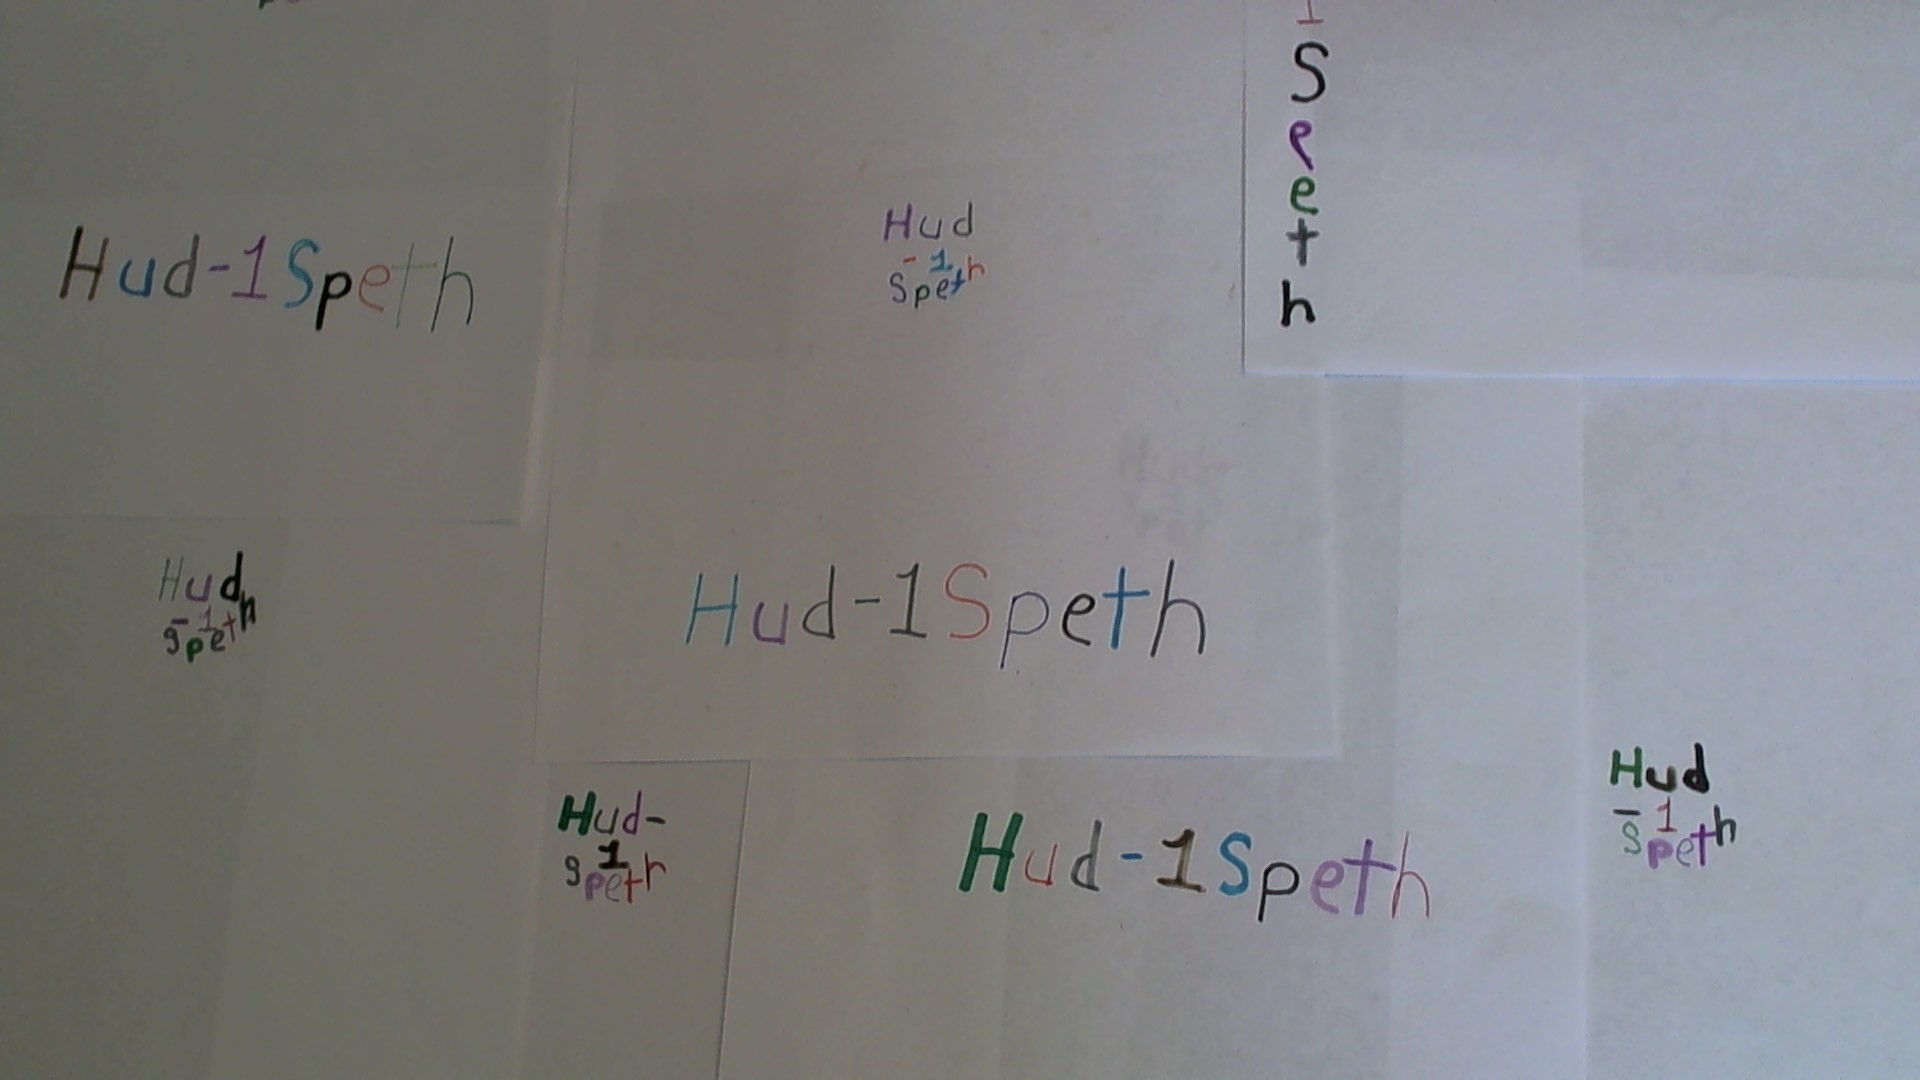 1
S
e
e
t
h
Hud
-1
Speth
Hud-1Speth
Hud
-1
Speth
Hud-1Speth
Hud-
1
Speth
Hud-1Speth
Hud
-1
Speth